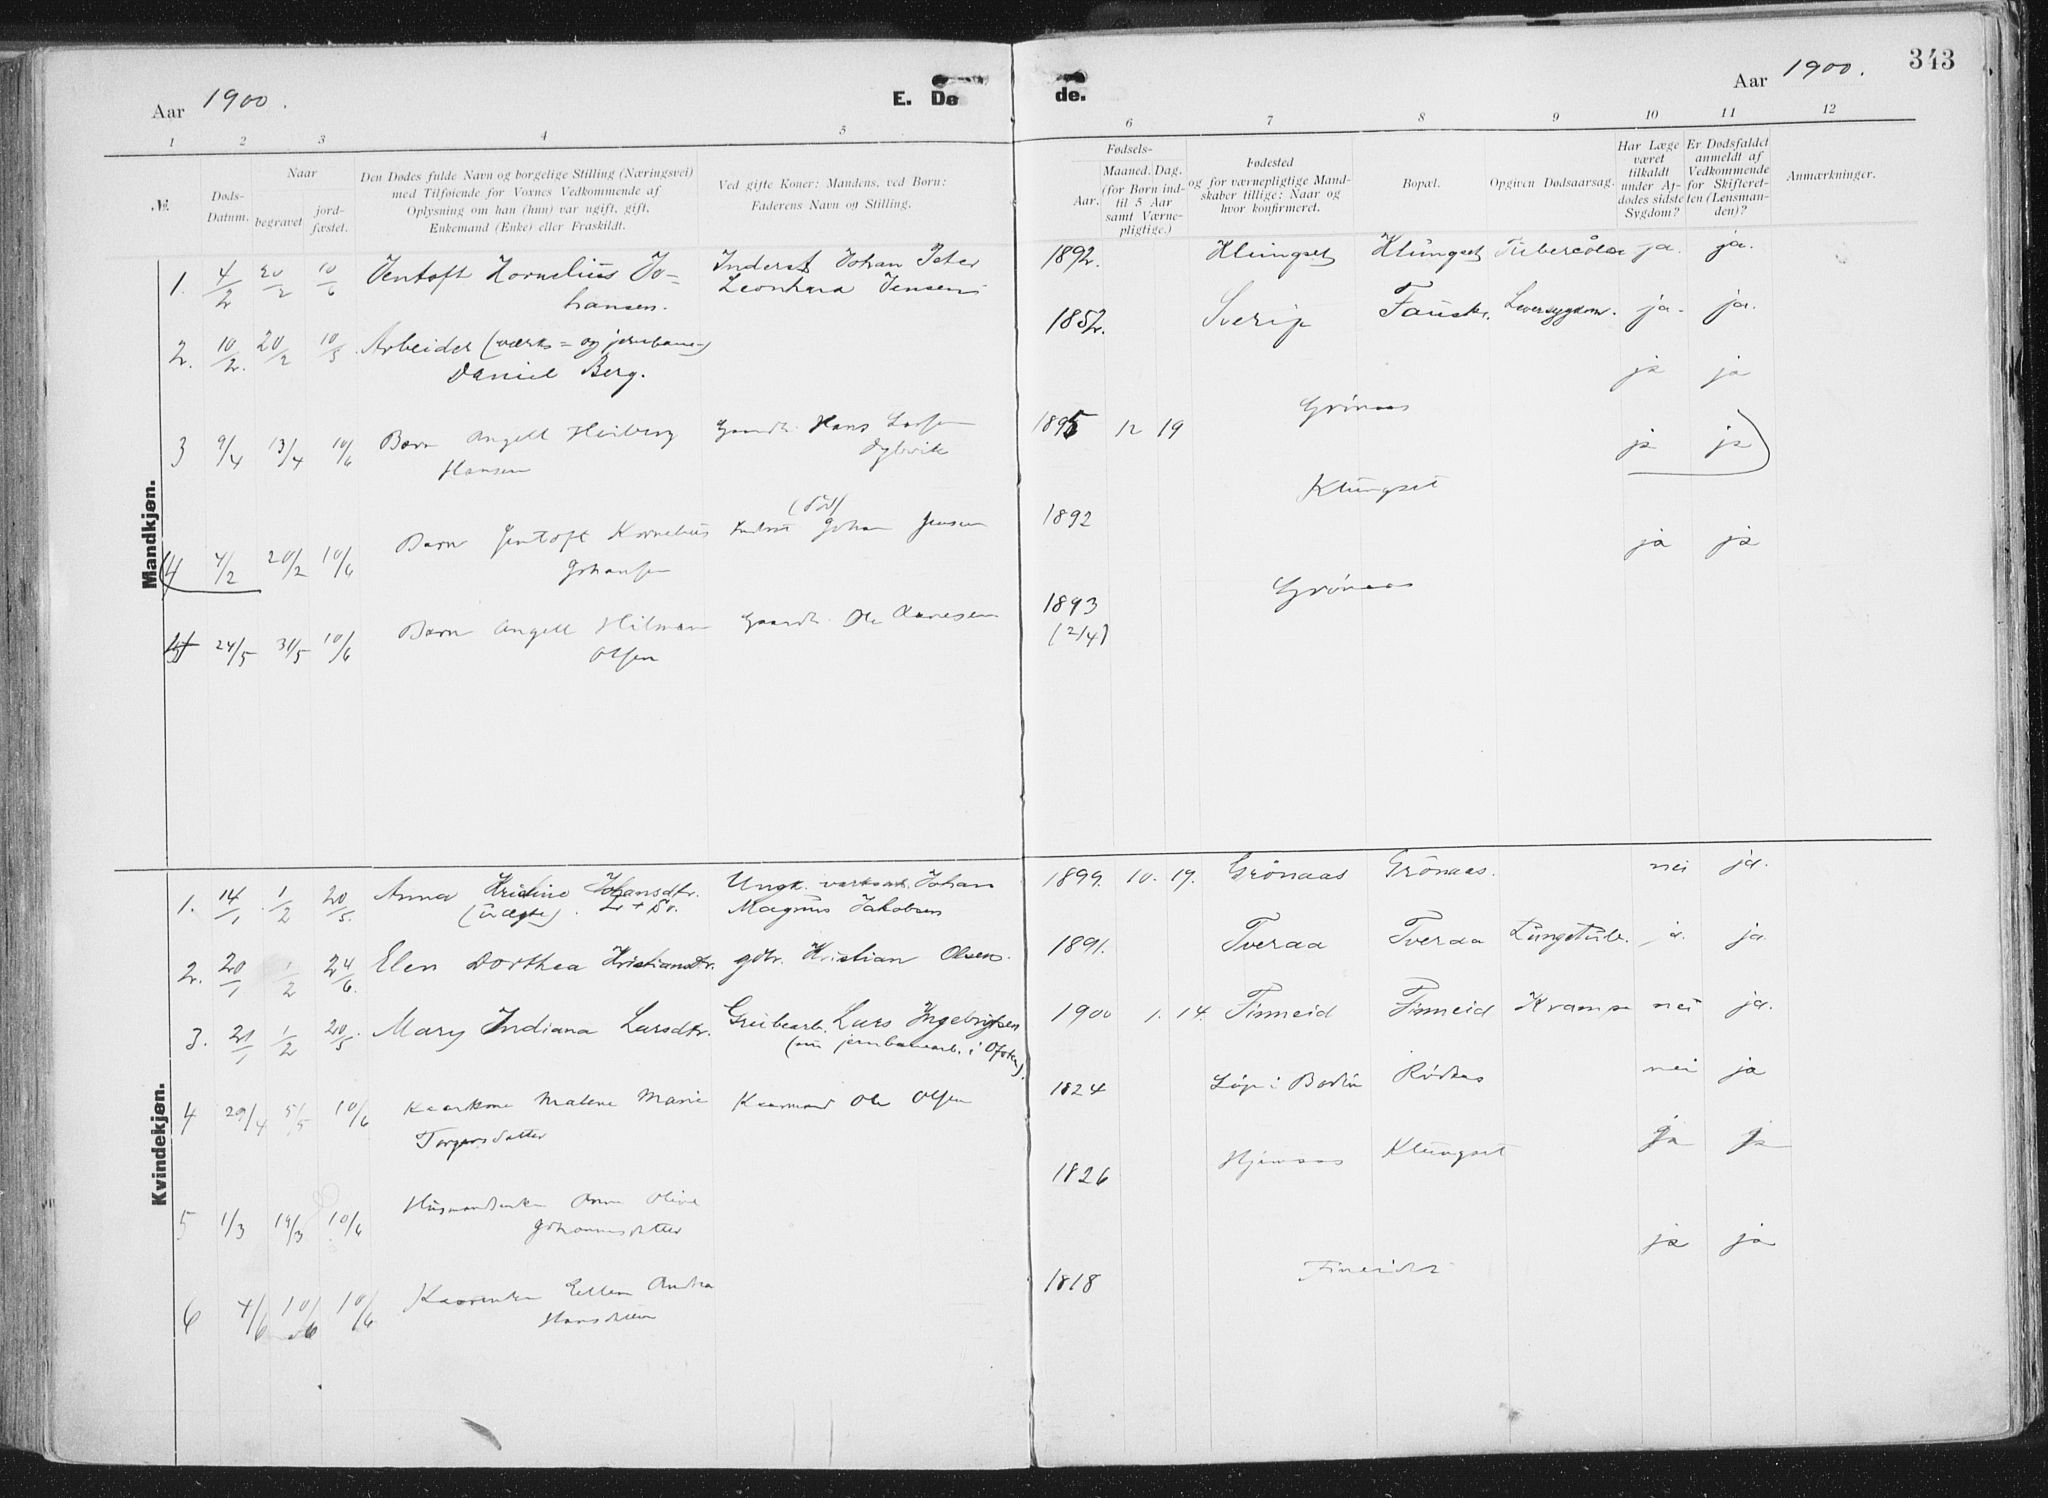 Aar 1900.
E. Døde.
Aar 1900. 343
1 2 3 4 5 6 7 8 9 10 11 12
№.
Døds-Datum.
Naar
begravet
jord-fæstet.
Den Dødes fulde Navn og borgelige Stilling (Næringsvei)
med Tilføiende for Voxnes Vedkommende af
Oplysning om han (hun) var ugift, gift,
Enkemand (Enke) eller Fraskildt.
Ved gifte Koner: Mandens, ved Børn:
Faderens Navn og Stilling.
Fødsels-
Aar.
Maaned. Dag.
(for Børn ind-
til 5 Aar
samt Værne-
pligtige.)
Fødested
og for værnepligtige Mand-
skaber tillige: Naar og
hvor konfirmeret.
Bopæl.
Opgiven Dødsaarsag.
Har Læge
været
tilkaldt
under Af-
dødes sidste
Sygdom?
Er Dødsfaldet
anmeldt af
Vedkommende
for Skifteret-
ten (Lensman-
den)?
Anmærkninger.
Mandkjøn.
1. 4/2 20/2 10/6 Jentoft Kornelius Jo- Inderst Johan Peter 1892. Klungset Klungset ja. ja.
hansen. Leonhard Jensen
2. 10/2. 20/2 Arbeider (værks= og jernbane-) 1852. Sverip Fauske. Leversygdom. ja. ja.
Daniel Berg.
3 9/4 13/4 10/6 Barn Angell Heiberg Gaardbr. Hans Larsen 1895 12 19 Grønaas ja ja
Hansen Dybvik
4 4/2 20/2 10/6 Barn Jentoft Kornelius Inderst (død) Johan Jensen 1892 Klungset ja ja
Johansen
24/5 31/5 10/6 Barn Angell Hilmar Gaardbr. Ole 1893 Grønaas ja ja
Olsen (2/4)
Kvindekjøn.
1. 14/1 1/2 20/5. Anna Kristine Johansdtr. Ungk. Johan 1899. 10. 19. Grönaas Grönaas. nei ja.
(uægte). Magnus Jakobsen
2. 20/1 1/2 24/6. Elen Dorthea Kristiansdtr. gdbr. Kristian Olsen. 1891. Tveraa Tveraa Lungetub. ja. ja
3. 21/1 1/2 20/5. Mary Indiana Larsdtr. Grubearb. Lars Ingebrigtsen 1900 1. 14. Finneid Finneid Krampe nei ja.
(nu jernbanearb. i Ofoten).
4 29/4 5/5 10/6 Kaarkone Malene Marie Kaarmand Ole Olsen 1824 Løp i Bodin Rödaas nei ja
Torgersdatter
5 1/3 14/3 10/6 Husmandsenke Anne Oline 1826 Klungset ja ja
Johannesdatter
6 4/6 10/6 10/6 Kaarenke Ellen Andrea 1818 Fineidet ja ja
Hansdatter